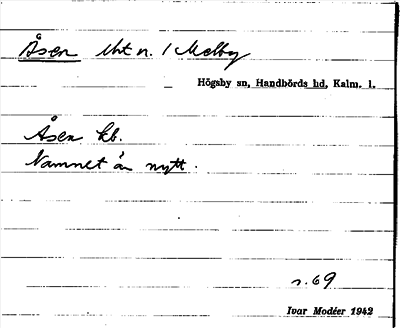 Åsen lht n. 1 Melby
Högsby sn, Handbörds hd, Kalm. l.
Åsen kb.
Namnet är nytt.
s. 69
Ivar Modéer 1942